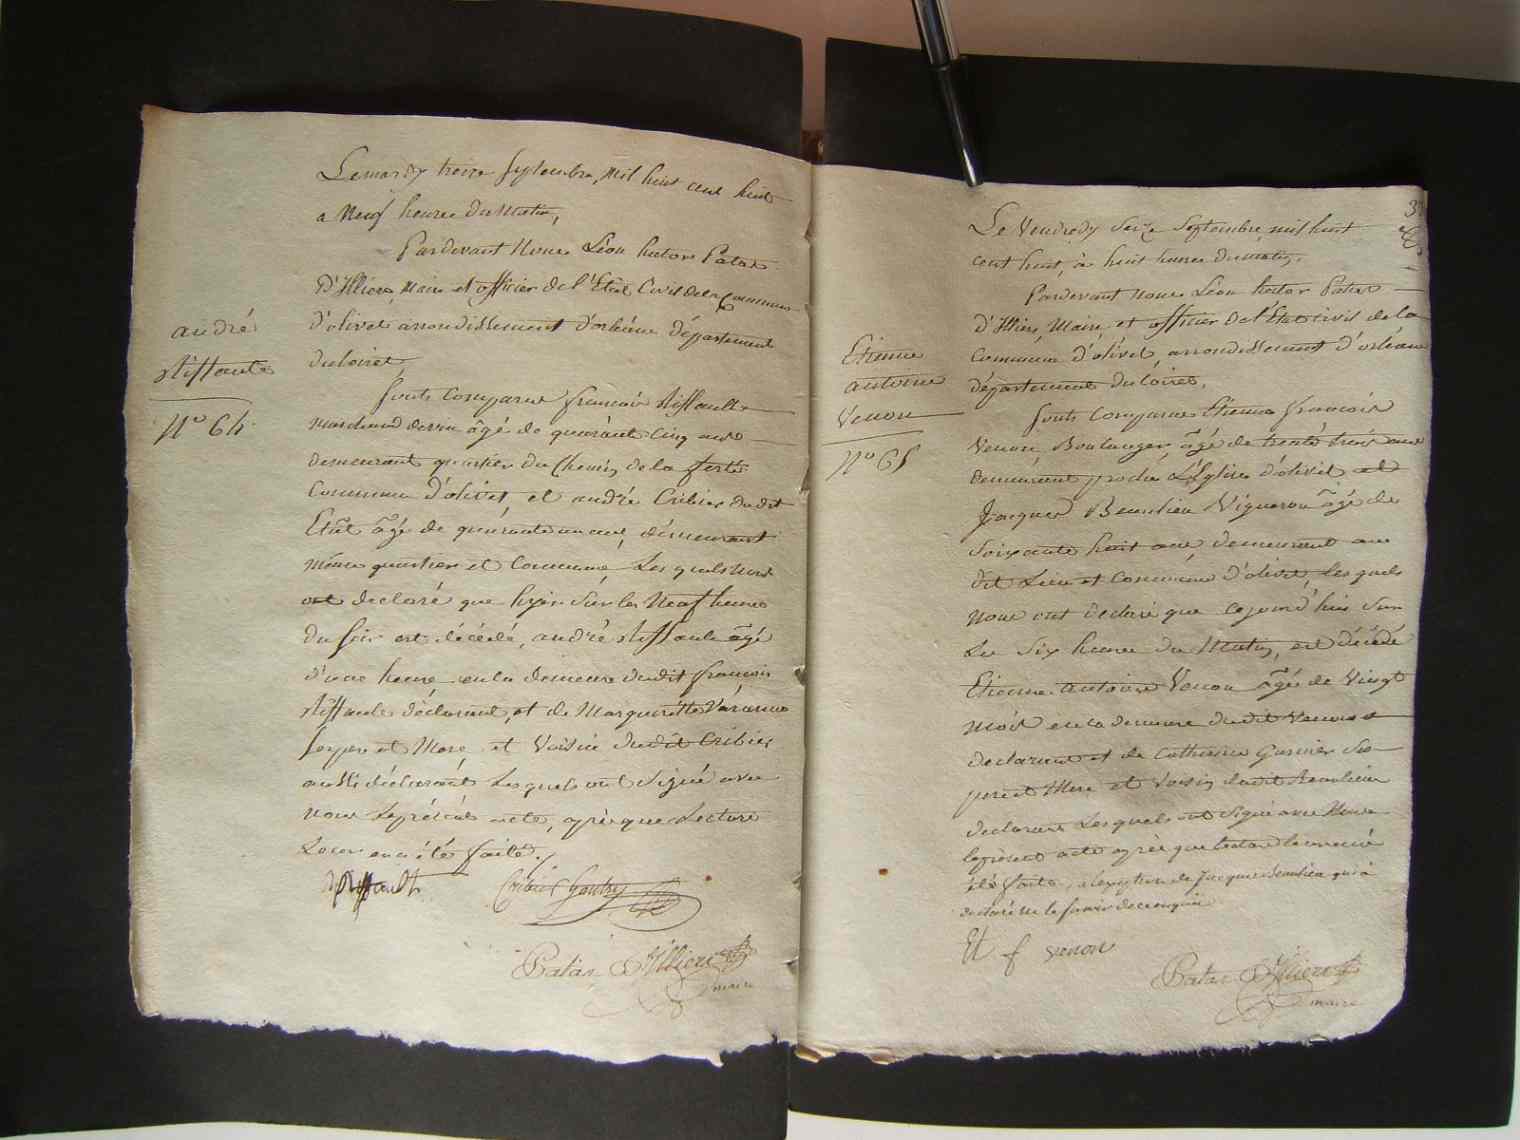 Le mardy treize septembre, mil huit cent huit
a neuf heures du matin,
Pardevant nous Léon hector Patas
D'Illiers, Maire et officier de l'Etat Civil de la Commune
d'olivet arrondissement d'orléans département
du loiret,
andré
Riffault
N° 64
Sont comparus françois Riffault
marchand de vin âgé de quarante cinq ans
demeurant quartier du Chemin de la ferté
Commune d'olivet, et andré Cribier du dit
Etat âgé de quarante un ans, demeurant
même quartier et Commune, Les quels nous
ont déclaré que hyer sur les Neuf heures
du soir est décédé, andré Riffault âgé
d'une heure en la demeure dudit françois
Riffault déclarant, et de Margueritte
ses pere et Mere, et Voisin dudit Cribier
aussi déclarant Les quels ont signé avec
nous Le présent acte, après que Lecture
Leur en a été faite.
Riffault
Cribier
Patas D'Illiers
maire
Le Vendredy Seize Septembre mil huit
cent huit, à huit heures du matin,
Pardevant nous Léon hector Patas
d'Illiers, Maire, et officier de l'Etat civil de la
Commune d'olivet, arrondissement d'orléans
département du loiret,
Etienne
antoine
Venon
N° 65
Sont Comparus Etienne françois
Venon, Boulanger, âgé de trente trois ans
demeurant proche L'Eglise d'olivet et
Jacques Beaulieu Vigneron âgé de
Soixante huit ans, demeurant au
dit Lieu et Commune d'olivet, Les quels
nous ont déclaré que cejourd'hui sur
Les Six heures du Matin, est décédé
Etienne Antoine Venon âgé de Vingt
mois en la demeure dudit Venon
déclarant et de Catherine Garnier Ses
pere et Mere et Voisin dudit Beaulieu
déclarans Les quels ont signé avec Nous
le présent acte après que lecture leur en a
été faite, à l'exception de Jacques Beaulieu qui a
déclaré ne le savoir de ce enquis
Et f venon
Patas D'Illiers
maire